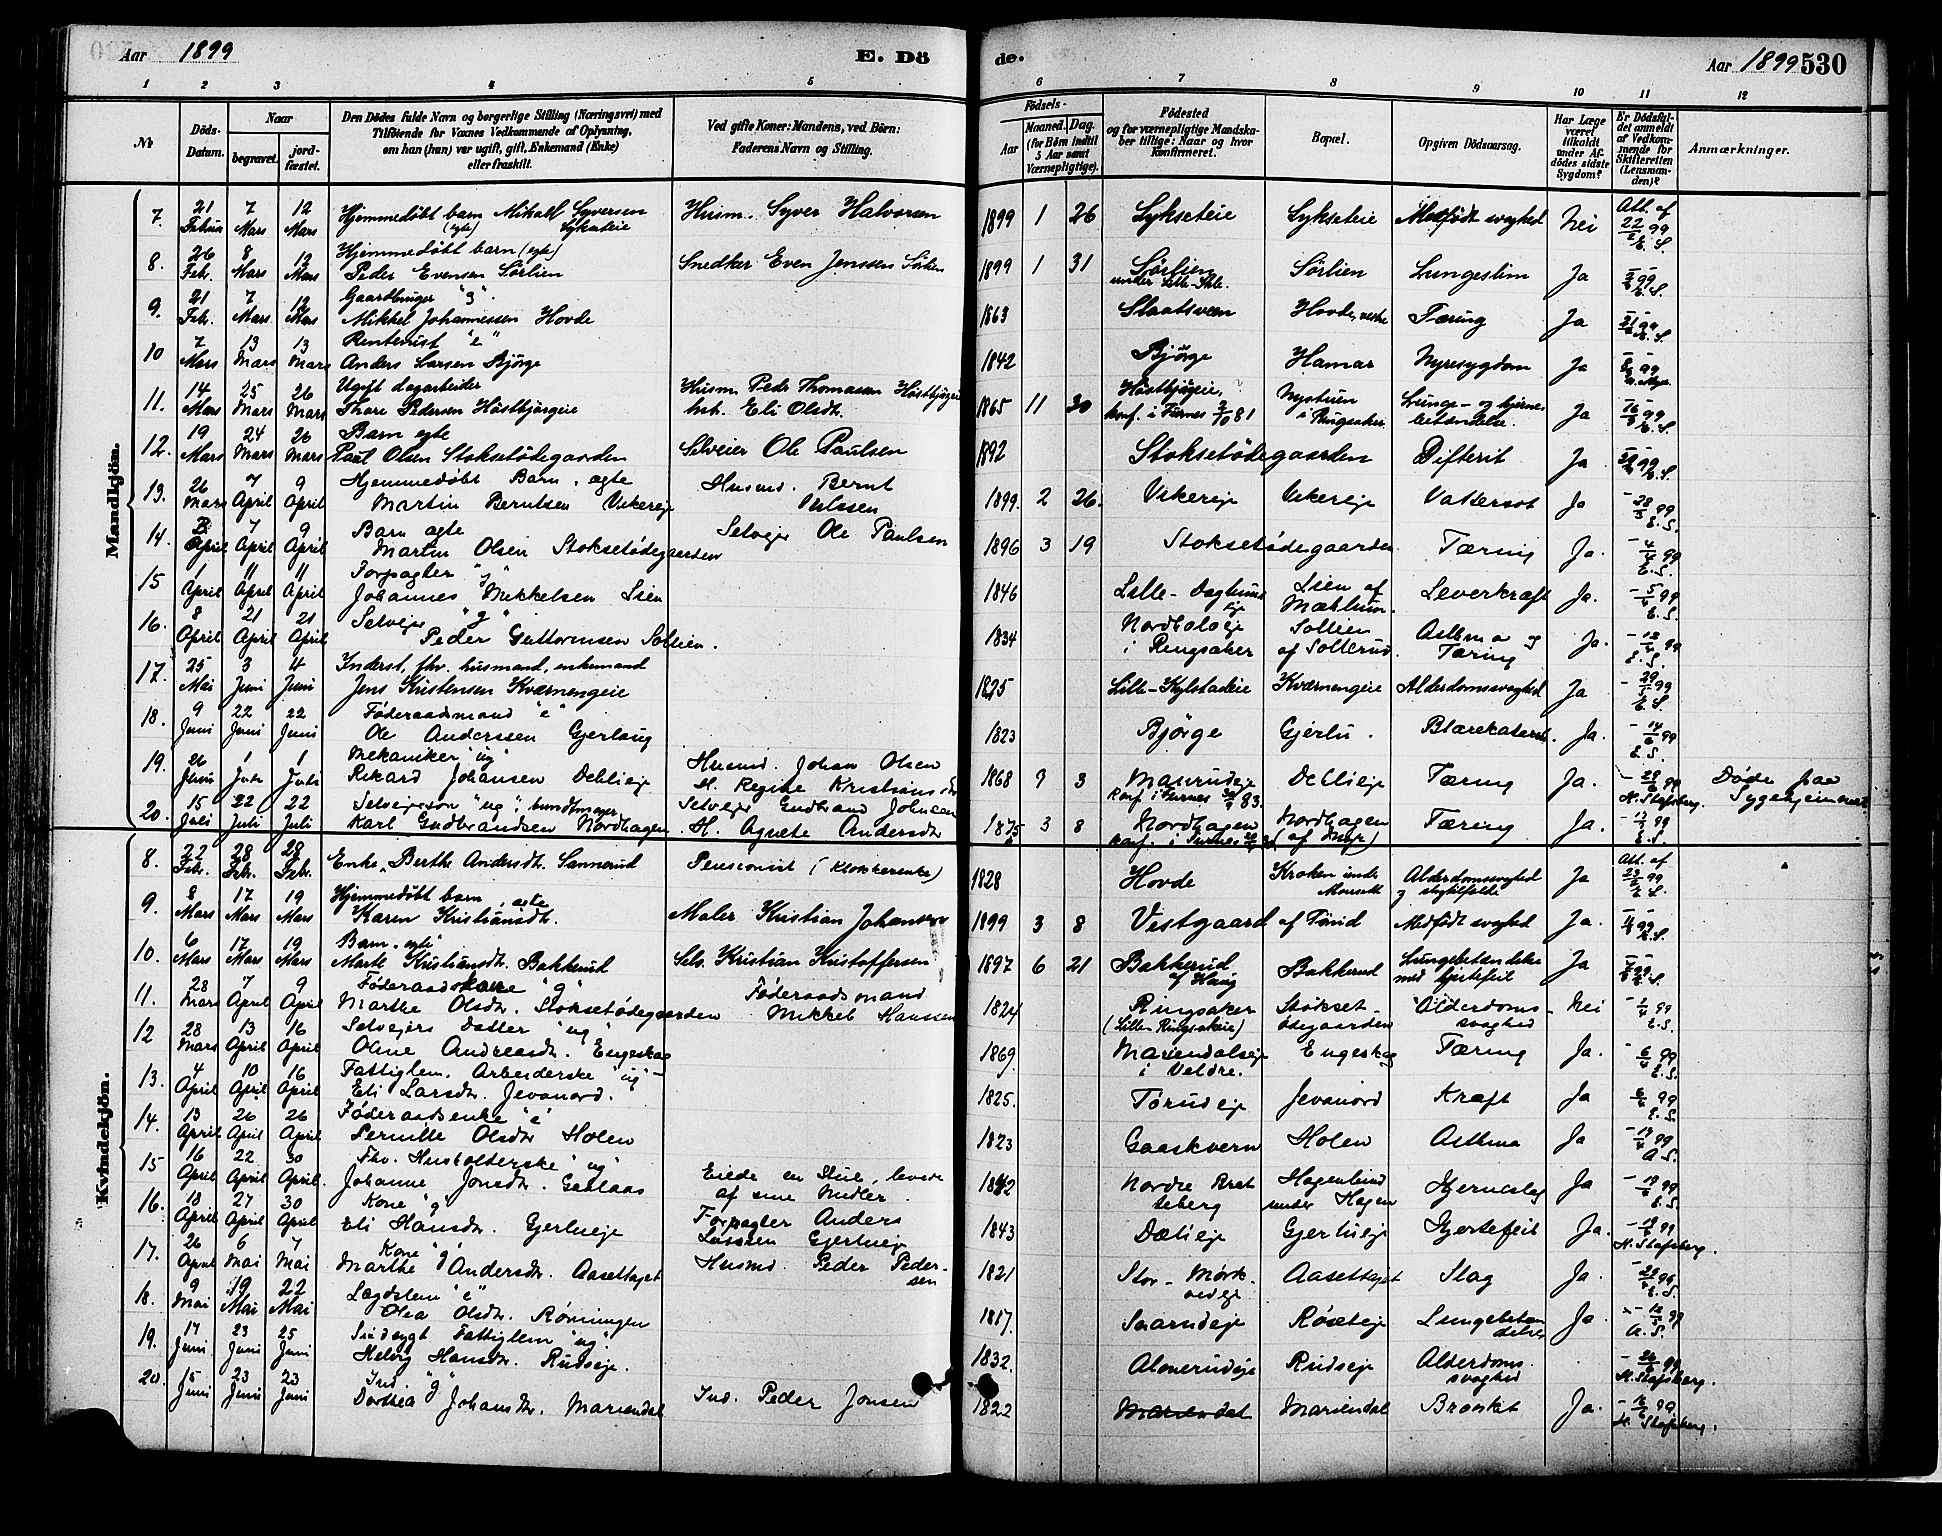 Aar 1899 E. Dö
de. Aar 1899 530
1 2 3 4 5 6 7 8 9 10 11 12
№ Döds-Datum. Naar begravet. jordfæstet. Den Dödes fulde Navn og borgerlige Stilling (Næringsvei) med Tilföiende for Voxnes Vedkommende af Oplysning, om han (hun) var ugift, gift, Enkemand (Enke) eller fraskilt. Ved gifte Koner: Mandens, ved Börn: Faderens Navn og Stilling. Födsels- Aar Maaned. Dag. (for Børn indtil 5 Aar samt Værnepligtige). Födested og for værnepligtige Mandskaber tillige: Naar og hvor konfirmeret. Bopæl. Opgiven Dödsaarsag. Har Læge været tilkaldt under Afdödes sidste Sygdom? Er Dödsfaldet anmeldt af Vedkommende for Skifteretten (Lensmanden)? Anmærkninger.
Mandkjön.
7. 21 Februa 7 Mars 12 Mars Hjemmedøbt barn Mikael Syversen (egte) Lykseteie Husm. Syver Halvorsen 1899 1 26 Lykseteie Lykseteie Medfødt svaghed Nei Att. af 22/2 99 E. S.
8. 26 Feb. 8 Mars 12 Mars Hjemmedøbt barn (egte) Peder Evensen Sørlien Snedker Even Jenssen Sørlien 1899 1 31 Sørlien under Lille- Sørlien Lungeslim Ja 99 E. S.
9. 21 Feb. 7 Mars 12 Mars Gaardbruger "g" Mikkel Johannessen Hovde 1863 Staatsveen Hovde, vestre Tæring Ja 99 E. S.
10 7 Mars 13 Mars 13 Mars Rentenist "e" Anders Larsen Bjørge 1842 Bjørge Hamar Nyresygdom Ja 99
11. 14 Mars 25 Mars 26 Mars Ugift dagarbeider Thore Pedersen Høstbjørgeie Husm. Peder Thomassen Høstbjørgeie Eli Olsdt. 1865 11 30 Høstbjørgeie, konf. i Furnes 2/10 81 Nystuen i Ringsaker Lunge- og hjernebetændelse. Ja 16/3 99 E. S.
12. 19 Mars 24 Mars 26 Mars Barn egte Paul Olsen Stoksetødegaarden Selveier Ole Paulsen 1892 Stoksetødegaarden Difterit Ja 99 E. S.
13. 26 Mars 7 April 9 April Hjemmedøbt Barn, egte Martin Berntsen Vikereje Husmd. Bernt 1899. 2 26. Vikereje Vikereje Vattersot Ja 28/3 99 E. S.
14. 3 April 7 April 9 April Barn egte Martin Olsen Stoksetødegaarden Selvejer Ole Paulsen 1896 3 19 Stoksetødegaarden Tæring Ja. 4/4 99 E. S.
15 1 April 11 April 11 April Forpagter "g" Johannes Mikkelsen Lien 1846 Lille- Dagtunseje Lien af Mæhlum. Leverkræft Ja. 5/4 99 E. S.
16. 8 April 21 April 21 April Selvejer "g" Peder Guttormsen Sollien. 1834 i Ringsaker Sollien af Sollerud. Asthma og Tæring Ja. 12/4 99 E. S.
17. 25 Mai 3 Juni 4 Juni Inderst, fhv. husmand, enkemand Jens Kristensen Kværnengeie 1825 Lille-Kylstadeie Kværnengeie Alderdomssvaghed Ja 29/5 99 E. S.
18. 9 Juni 22 Juni 22 Juni Føderaadsmand "e" Ole Anderssen Gjerlaug 1823 Bjørge Gjerlu. Blærekatarrh. Ja. 14/6 99 E. S.
19. 26 Juni 1 Juli 1 Juli Mekaniker "ug" Rikard Johansen Dehlieje Husmd. Johan Olsen H. Regine Kristiansdtr 1868 9 3 Maurudeje konf. i Furnes 30/9 83. Dehlieje Tæring Ja. 28/6 99 H. Stafsberg. Døde paa Sygehjemmet
20. 15 Juli 22 Juli 22 Juli Selvejersøn "ug", bundtmager, Karl Gudbrandsen Nordhagen Selvejer Gudbrand Johnsen H. Agnete Andersdtr 1875 3 8 Nordhagen konf. i Furnes Nordhagen (af Dueje) Tæring Ja. 99 E. S.
Kvindekjön.
8. 22 Feb. 28 Feb. 28 Feb. Enke, Berthe Andersdt. Sannerud Pensionist (Klokkerenke) 1828 Hovde Kroken under Alderdomssvaghed og slagtilfælde Ja Att. af 23/2 99 E. S.
9. 8 Mars 17 Mars 19 Mars Hjemmedøbt barn, egte Karen Kristiansdt. Maler Kristian Johansen 1899 3 8 Vestgaard af Tørud Medfødt svaghed Ja. 99 E. S.
10. 6 Mars 17 Mars 19 Mars Barn, egte Marte Kristiansdt. Bakkerud Selv. Kristian Kristoffersen 1897 6 21 Bakkerud af Haug Bakkerud Lungebetændelse med hjertefeil Ja 99 E. S.
11. 28 Mars 7 April 9 April Føderaadskone "g" Marthe Olsdtr. Stoksetødegaarden Føderaadsmand Mikkel Hanssen 1824 Ringsaker (Lille Ringsakeie) Stokset-ødegaarden Alderdoms-svaghed Nei 1/4 99 E. S.
12 28 Mars 13 April 16 April Selvejers Datter "ug" Oline Andreasdtr. Engeskog 1869. Mariendalseje i Veldre. Engeskog Tæring Ja. 6/4 99 E. S.
13. 4 April 10 April 16 April Fattiglem. Arbeiderske "ug" Eli Larsdtr. Jevanord. 1825. Tørudeje Jevanord Kræft Ja 6/4 99 E. S.
14. 13 April 26 April 26 April Føderaadsenke "e" Pernille Olsdtr Holen 1823 Gaaskvern Holen Asthma Ja 19/4 99 A. S.
15 16 April 22 April 30 April. Fhv. Husholderske "ug" Johanne Jonsdtr. Geglaas Eiede en Stue, levede af sine Midler. 1842 Nordre Brat teberg Hagenlund under Hagen Hjerneslag Ja 19/4 99 E. S.
16. 18 April 27 April 30 April Kone "g" Eli Hansdtr. Gjerlueje Forpagter Anders Larsen Gjerlueje 1843 Dælieje Gjerlueje Hjertefeil Ja. 99 H. Stafsberg.
17. 26 April 6 Mai 7 Mai Kone "g" Marthe Andersdtr. Aasettajet Husmd. Peder Pedersen 1821 Stor- Mørk-vedeje Aasettajet Slag Ja. 99. E. S.
18. 9 Mai 19 Mai 22 Mai Lægdslem "e" Olea Olsdtr. Rønningen 1817. Saarudeje Røseteje Lungebetændelse Ja. 99 A. S.
19. 17 Juni 23 Juni 25 Juni Sindsygt Fattiglem "ug" Helvig Hansdtr. Rudseje. 1832. Alonerudeje Rudseje Alderdoms-svaghed 26/6 99 H. Stafsberg.
20. 15 Juni 23 Juni 23 Juni Ind "g" Dorthea Johansdtr. Mariendal Ind. Peder Jonsen 1822 Mariendal Mariendal Bronkit Ja. 16/6 99. H. Stafsberg.